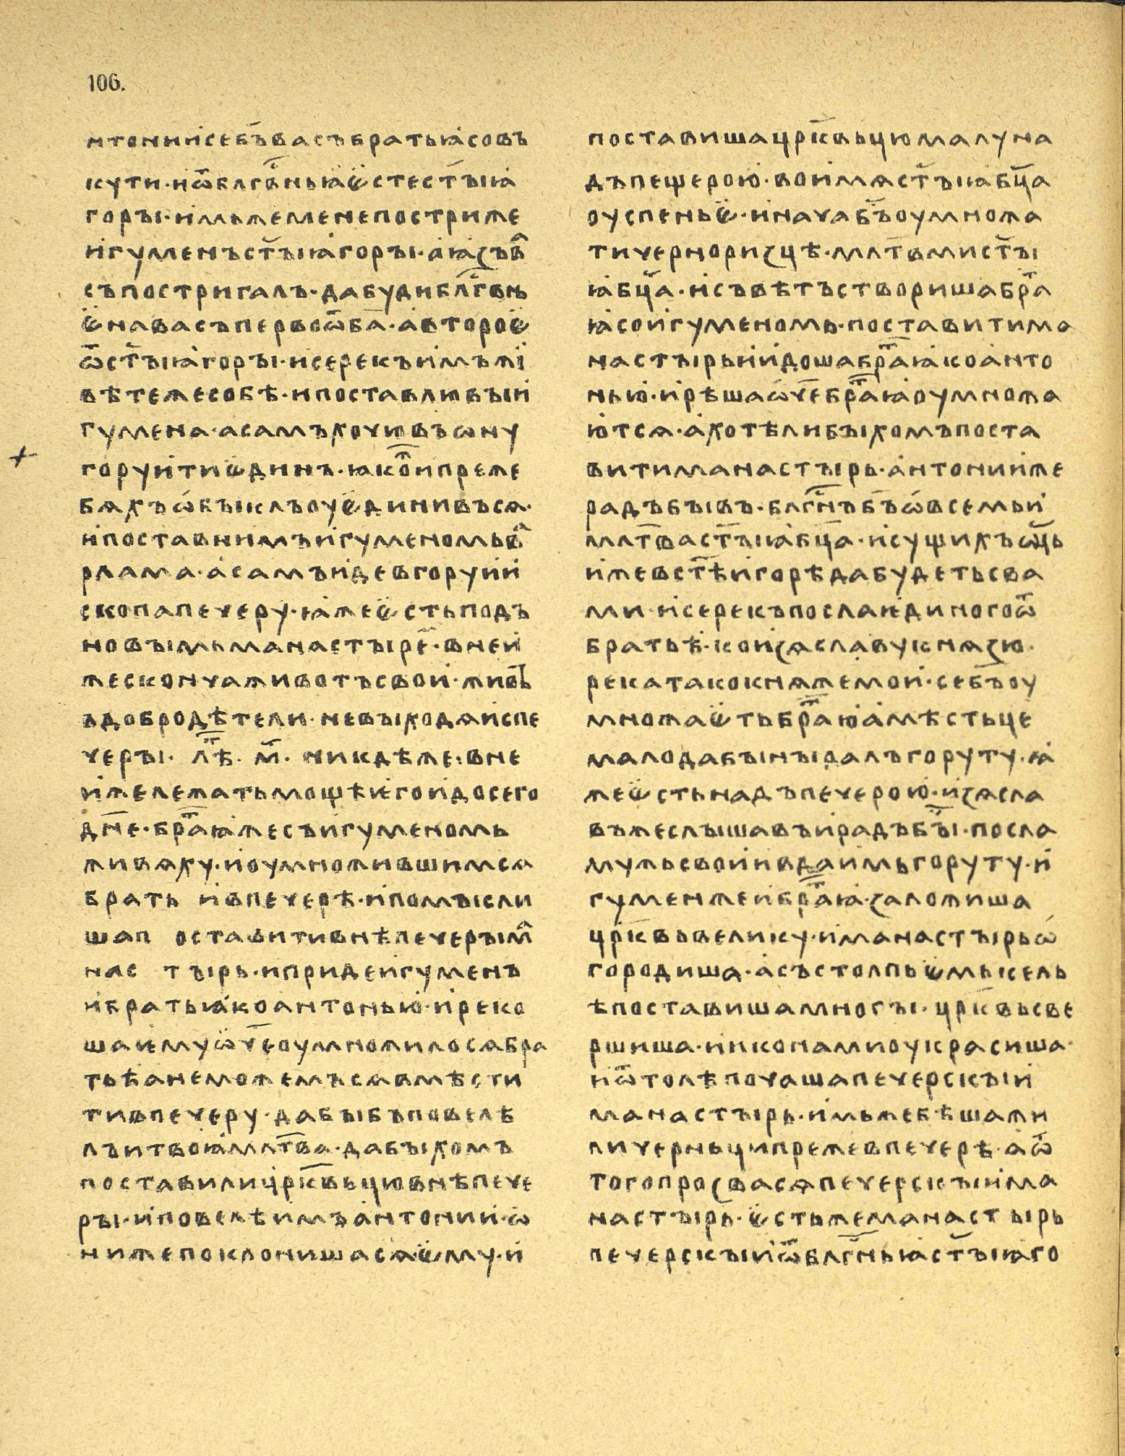 106.
нтонии себ҃ъ васъ братьꙗ совъ
купи· и ѿ блгⷭ҇вньꙗ ѥсте ст҃ыꙗ
горы· имьже мене постриже
игуменъ ст҃ыꙗ горы· а ꙗзъ вⷭ҇а
съ постригалъ· да буди блгⷭ҇внь
ѥ на васъ первоѥ ѿ б҃а· а второѥ
ѿ ст҃ыꙗ горы· и се рекъ имъ жї
вѣте же собѣ· и поставлю вы и
гумена· а самъ хочю въ ѡну
гору ити ѥдинъ· ꙗкоⷤ и преже
бѧхъ ѡбыклъ оуѥдинивъсѧ·
и постави имъ игуменомь вⷭ҇а
рлама· а самъ иде в гору и и
скопа печеру· ꙗже ѥсть подъ
новымь манастыремⷨ· в неи
же сконча животъ свои· живы
въ добродѣтели· не выходѧ ис пе
черы· лѣтⷮ· м҃· никдѣже· в не
иже лежать мощѣ иего и до сего
дн҃е· братꙗⷮ же съ игуменомь
живѧху· и оумножившимсѧ
брать и в печерѣ· и помысли
ша п оставити внѣ печеры мⷶ
нас тырь· и приде игуменъ
и братьꙗ ко антонью· и реко
ша иму ѡч҃е оумножилосѧ бра
тьѣ а не можемъ сѧ вмѣсти
ти в печеру· да бы б҃ъ повелѣ
лъ и твоꙗ млтⷡ҇а· да быхомъ
поставили црк҃вьцю внѣ пече
ры· и повелѣ имъ антонии· ѡ
ни же поклонишасѧ ѥму· и
поставиша црк҃вьцю малу на
дъ пещерою· во имѧ ст҃ыꙗ бц҃а
оуспеньѥ· и нача б҃ъ оумножа
ти черноризцѣ· млт҃вми ст҃ы
ꙗ бц҃а· и съвѣтъ створиша браⷮ
ꙗ со игуменомь· поставити ма
настырь и идоша браⷮꙗ ко анто
нью· и рѣша ѡч҃е браⷮꙗ оумножа
ютсѧ· а хотѣли быхомъ поста
вити манастырь· антонии же
радъ бывъ· блгⷭ҇нъ б҃ъ ѡ всемь и
млт҃ва ст҃ыꙗ бц҃а· и сущихъ ѡц҃ь
иже в ст҃ѣи горѣ да будеть с ва
ми и се рекъ посла ѥдиного ѿ
братьѣ· ко изѧславу кнѧзю·
река тако кнѧже мои· се б҃ъ оу
множаѥть браⷮю а мѣстьце
мало да бы ны далъ гору ту· ꙗ
же ѥсть надъ печерою· изѧсла
въ же слышавъ и радъ быⷭ· посла
мужь свои и вда имъ гору ту· и
гумен же и браⷮꙗ· заложиша
црк҃вь велику· и манастырь ѡ
городиша· а съ столпьѥмь кель
ѣ поставиша многы· црк҃вь све
ршиша· и иконами оукрасиша·
и ѿтолѣ почаша печерскыи
манастырь· имьже бѣша жи
ли черньци преже в печерѣ· а ѿ
того прозвасѧ печерскыи ма
настырь· ѥсть же манастырь
печерскыи ѿ блгⷭ҇ньꙗ ст҃ыꙗ го